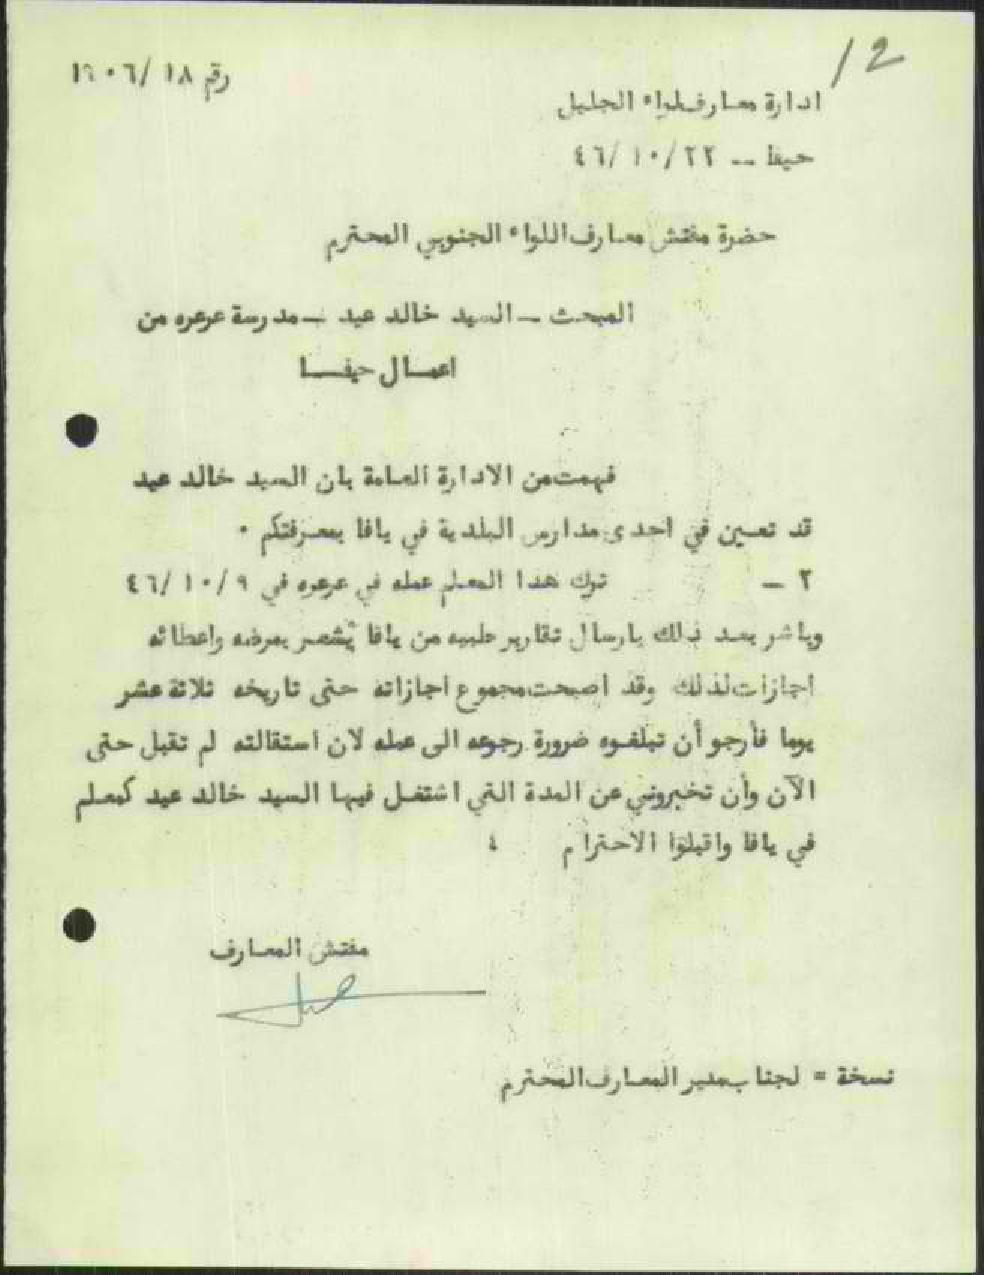 12
رقم ١٨/ ١٦٠٦
ادارة معارف لواء الجليل
حيفا — ٢٢/ ١٠/ ٤٦
حضرة مفتش معارف اللواء الجنوبي المحترم
المبحث — السيد خالد عيد — مدرسة عرعره من
اعمال حيفا
فهمت من الادارة العامة بان السيد خالد عيد
قد تعين في احدى مدارس البلدية في يافا بمعرفتكم ٠
٢ — ترك هدا المعلم عمله في عرعره في ٩/ ١٠/ ٤٦
وباشر بعد ذلك بارسال تقارير طبيه من يافا تُشعر بمرضه واعطائه
اجازات لذلك وقد اصبحت مجموع اجازاته حتى تاريخه ثلاثة عشر
يوما فأرجو أن تبلغوه ضرورة رجوعه الى عمله لان استقالته لم تقبل حتى
الآن وأن تخبروني عن المدة التي اشتغل فيها السيد خالد عيد كمعلم
في يافا واقبلوا الاحترام ،
مفتش المعارف
نسخة = لجناب مدير المعارف المحترم